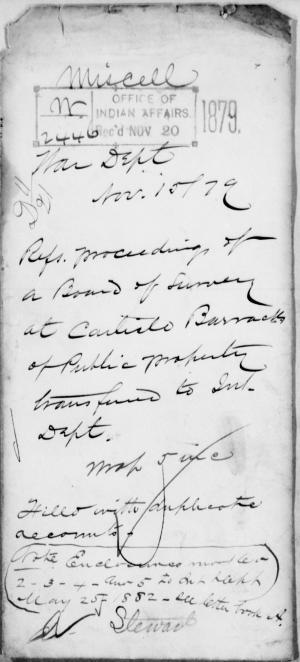 Miscell
W OFFICE OF
INDIAN AFFAIRS.
2446 Rec'd NOV 20 1879.
War Dept
Nov. 15/79
Refs. proceedings of
a Board of Survey
at Carlisle Barracks
of Public property
transferred to Int.
Dept.
5 inc
Filed with duplicate
accounts.
Note Enclosures
2 - 3 - 4 - and 5 to Int Dept
May 25, 1882 - see letter book A.
Stewart